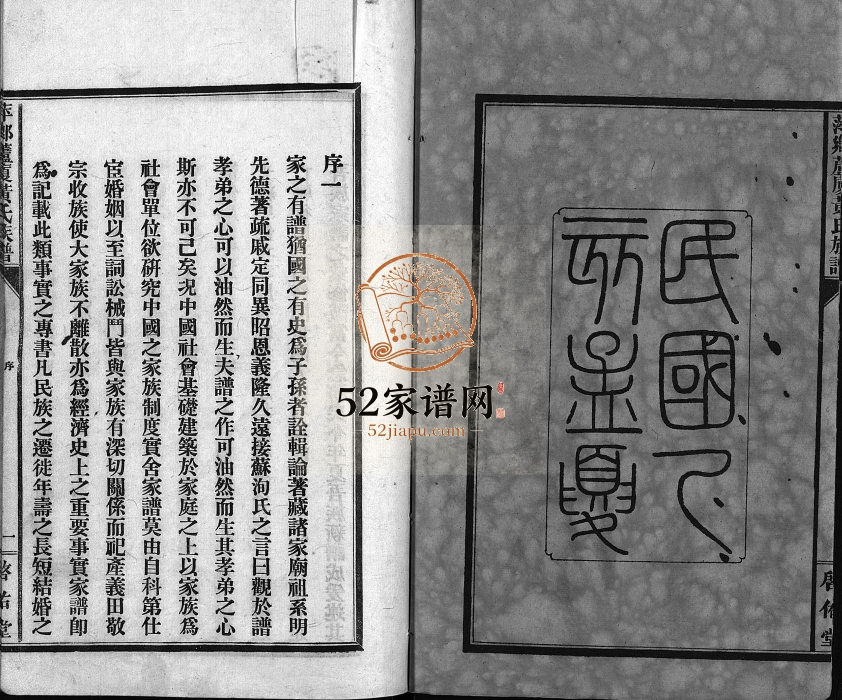 萍鄉蘆廈黃氏族譜
啓佑堂
民國
孟夏
序一
家之有譜猶國之有史爲子孫者詮輯論著藏諸家廟祖系明
先德著疏戚定同異昭恩義隆久遠接蘇洵氏之言曰觀於譜
孝弟之心可以油然而生夫譜之作可油然而生其孝弟之心
斯亦不可已矣况中國社會基礎建築於家庭之上以家族爲
社會單位欲硏究中國之家族制度實舍家譜莫由自科第仕
宦婚姻以至詞訟械鬥皆與家族有深切關係而祀產義田敬
宗收族使大家族不離散亦爲經濟史上之重要事實家譜卽
爲記載此類事實之專書凡民族之遷徙年壽之長短結婚之
萍鄉蘆廈黃氏族譜
序
一
啓佑堂
52家谱网
52jiapu.com